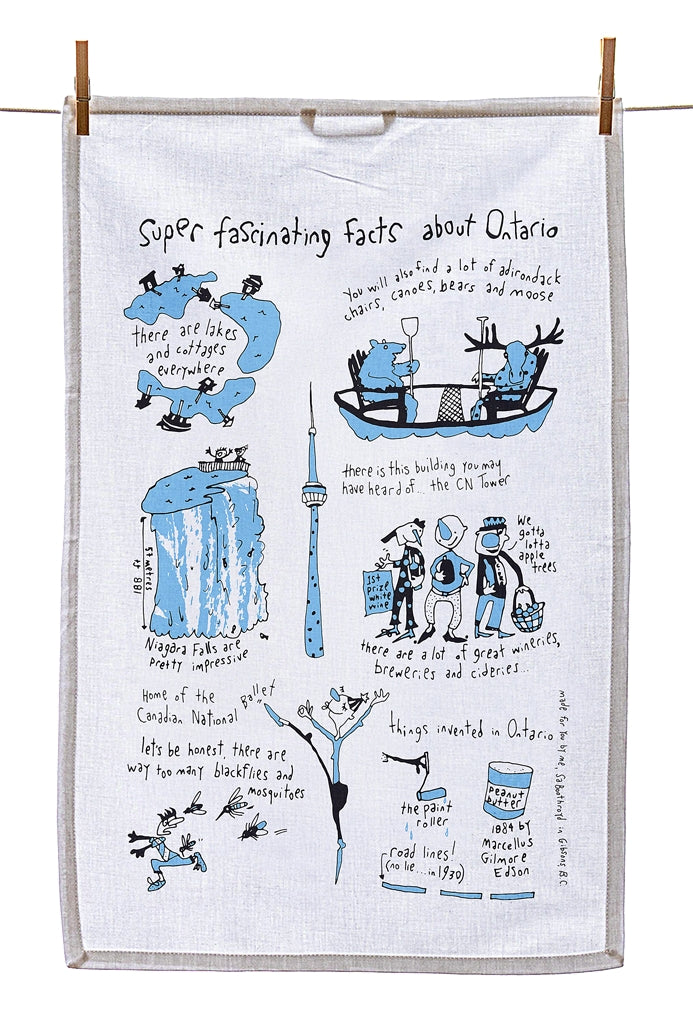 Super fascinating facts about Ontario
there are lakes
and cottages
everywhere
You will also find a lot of adirondack
chairs, canoes, bears and moose
there is this building you may
have heard of... the CN Tower
57 metres
188 ft
Niagara Falls are
pretty impressive
We
gotta
lotta
apple
trees
1st
prize
white
wine
there are a lot of great wineries,
breweries and cideries...
Home of the
Canadian National Ballet
let's be honest, there are
way too many blackflies and
mosquitoes
things invented in Ontario
the paint
roller
peanut
butter
1884 by
Marcellus
Gilmore
Edson
road lines!
(no lie...in 1930)
made for you by me, Sa Boothroyd in Gibsons, B.C